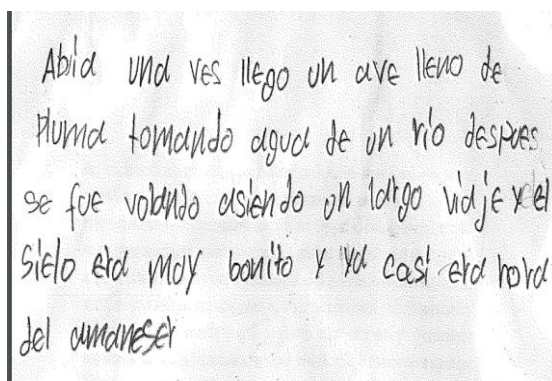 Abia una ves llego un ave lleno de
pluma tomando agua de un rio despues
se fue volando asiendo un largo viaje y el
sielo era muy bonito y ya casi era hora
del amaneser